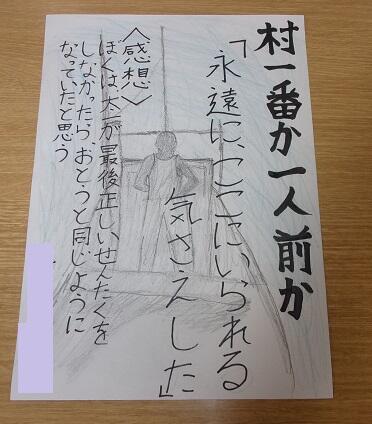 村一番か一人前か
「永遠に、ここにいられる
気さえした」
〈感想〉
ぼくは、太一が最後正しいせんたくを
しなかったら、おとうと同じように
なっていたと思う